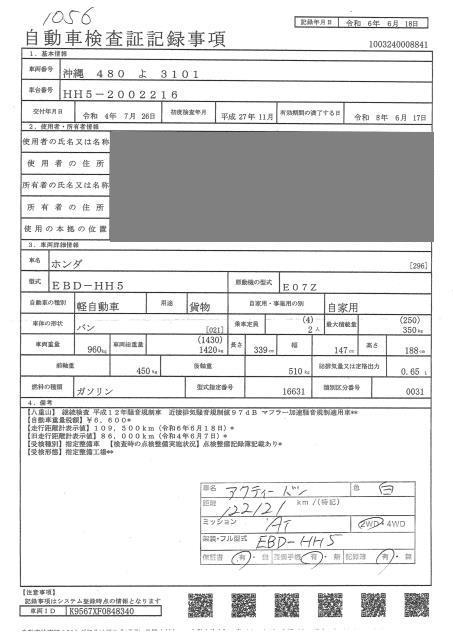 1056
記録年月日 令和 6年 6月 18日
自動車検査証記録事項
1003240008841
1. 基本情報
車両番号 沖縄 480 よ 3101
車台番号 HH5-2002216
交付年月日 令和 4年 7月 26日 初度検査年月 平成 27年 11月 有効期間の満了する日 令和 8年 6月 17日
2. 使用者・所有者情報
使用者の氏名又は名称
使用者の住所
所有者の氏名又は名称
所有者の住所
使用の本拠の位置
3. 車両詳細情報
車名 ホンダ [296]
型式 EBD-HH5 原動機の型式 E07Z
自動車の種別 軽自動車 用途 貨物 自家用・事業用の別 自家用
車体の形状 バン [021] 乗車定員 (4) 2人 最大積載量 (250) 350kg
車両重量 960kg 車両総重量 (1430) 1420kg 長さ 339cm 幅 147cm 高さ 188cm
前軸重 450kg 後軸重 510kg 総排気量又は定格出力 0.65 L
燃料の種類 ガソリン 型式指定番号 16631 類別区分番号 0031
4. 備考
【八重山】 継続検査 平成12年騒音規制車 近接排気騒音規制値97dB マフラー加速騒音規制適用車**
【自動車重量税額】¥6,600*
【走行距離計表示値】109,300km(令和6年6月18日)*
【旧走行距離計表示値】86,000km(令和4年6月7日)*
【受検種別】指定整備車 【検査時の点検整備実施状況】点検整備記録簿記載あり*
【受検形態】指定整備工場**
車名 アクティーバン 色 白
距離 122121 km/(特記)
ミッション AT 2WD・4WD
類装・フル型式 EBD-HH5
保証書 有・無 取扱手帳 有・無 記録簿 有・無
【注意事項】
記録事項はシステム登録時点の情報となります
車両ID K9567XF0848340